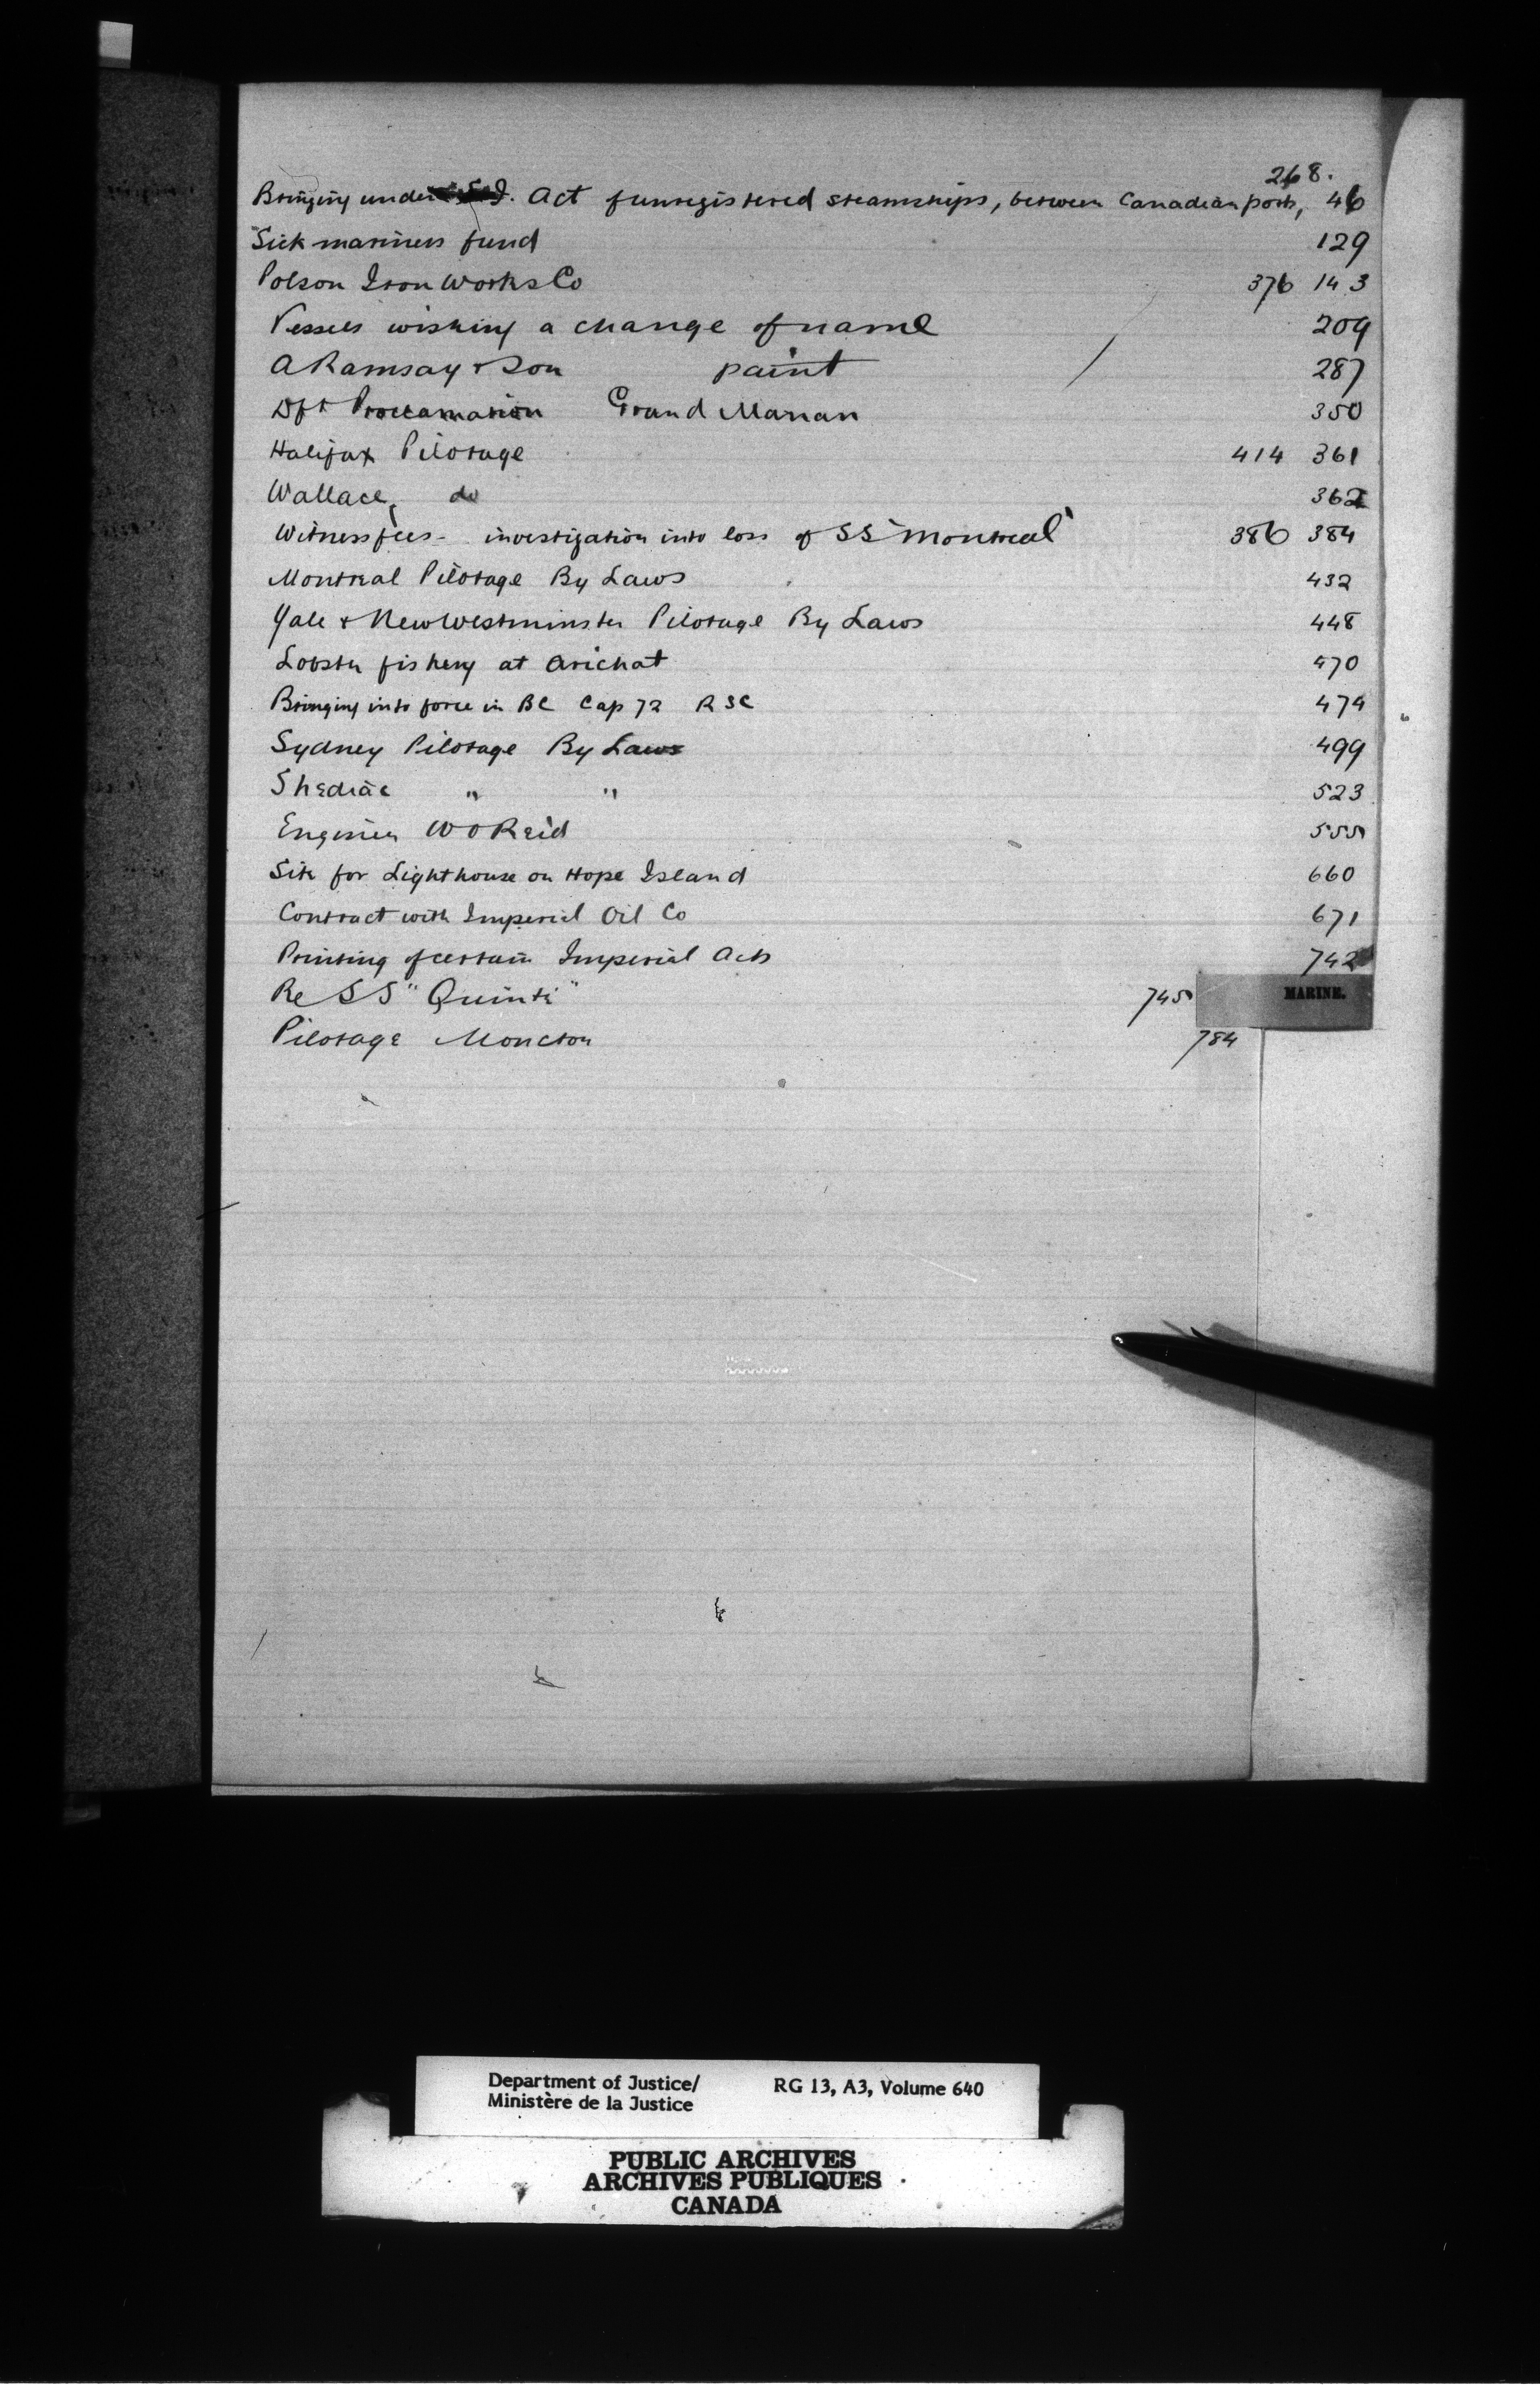 268.
Bringing under S. I. Act funregistered steamships, between Canadian ports, 46
Sick mariners fund 129
Polson Iron Works Co 376 143
Vessels wishing a change of name 209
A Ramsay & Son paint 287
Dft Proclamation Grand Manan 350
Halifax Pilotage 414 361
Wallace, do 362
Witness fees - investigation into loss of SS "Montreal" 386 384
Montreal Pilotage By Laws 432
Yale & New Westminster Pilotage By Laws 448
Lobster fishery at Arichat 470
Bringing into force in BC Cap 72 R S C 474
Sydney Pilotage By Laws 499
Shediac " " 523
Engineer W O Reid 555
Site for Lighthouse on Hope Island 660
Contract with Imperial Oil Co 671
Printing of certain Imperial Acts 742
Re SS "Quinte" 745
MARINE.
Pilotage Moncton 784
Department of Justice/ RG 13, A3, Volume 640
Ministère de la Justice
PUBLIC ARCHIVES
ARCHIVES PUBLIQUES
CANADA